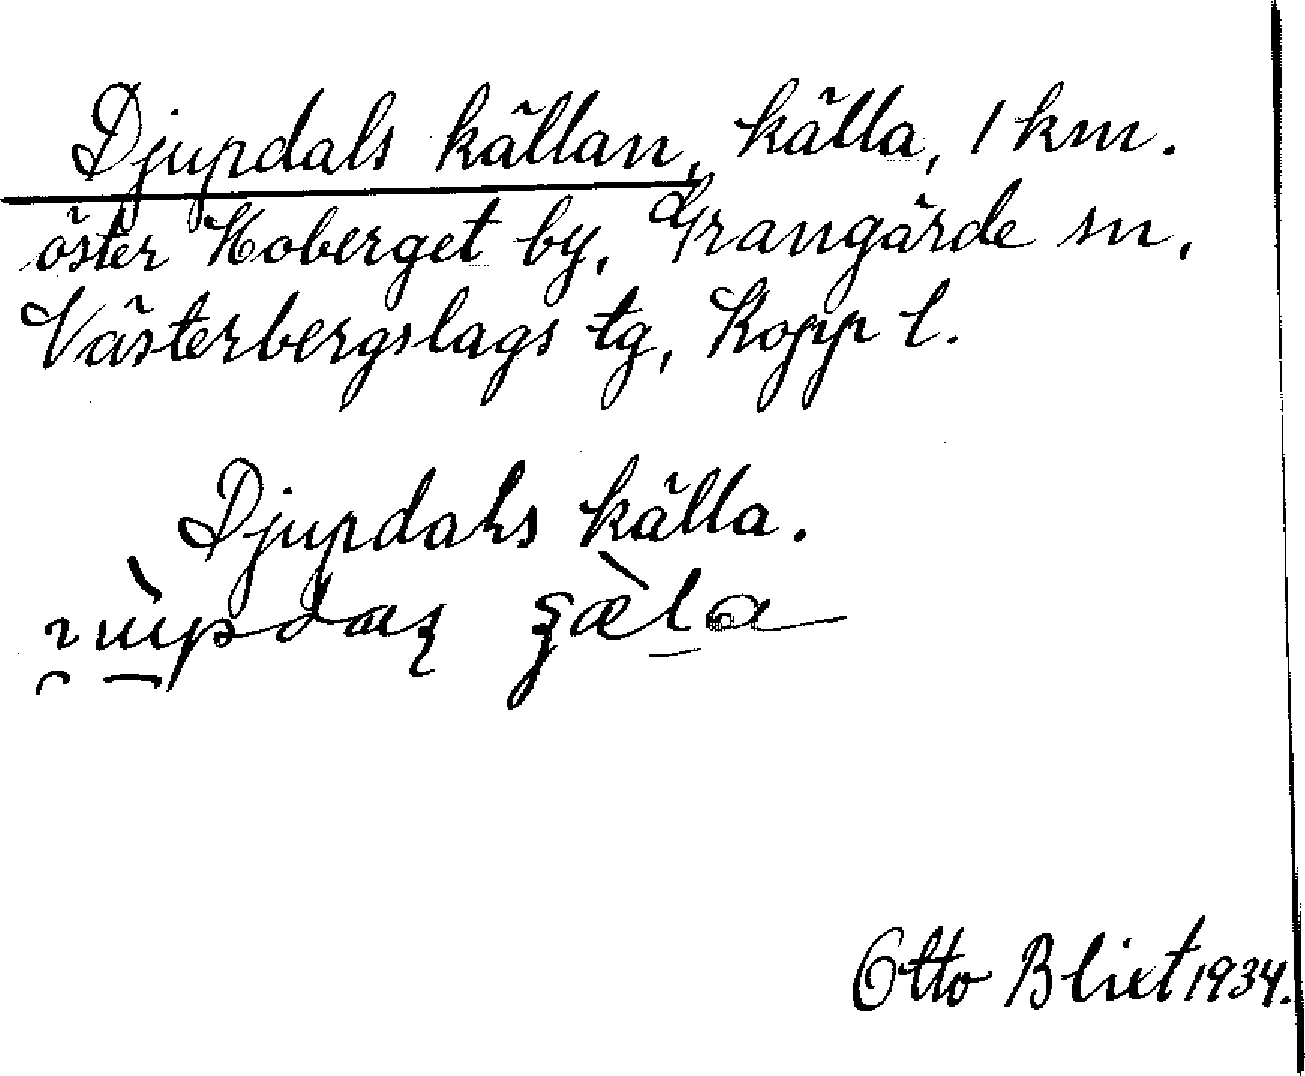 Djupdals källan, källa, 1 km.
öster Hoberget by, Grangärde sn,
Västerbergslags tg, Kopp l.
Djupdals källa.
Otto Blixt 1934.